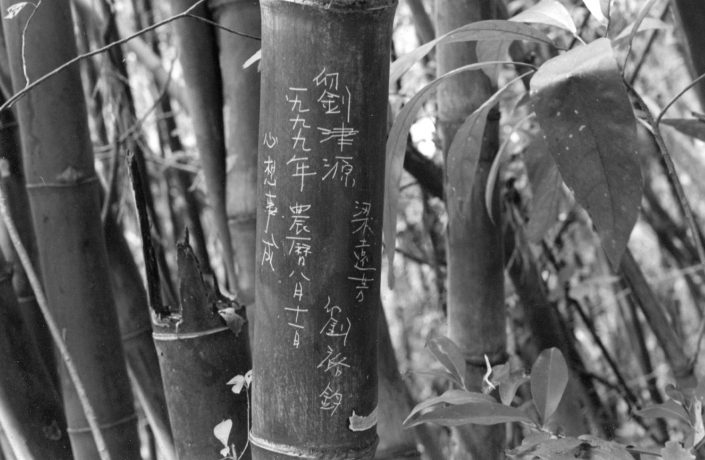 梁遠芳
劉津源
劉
一九九九年農曆八月十一日
心想事成